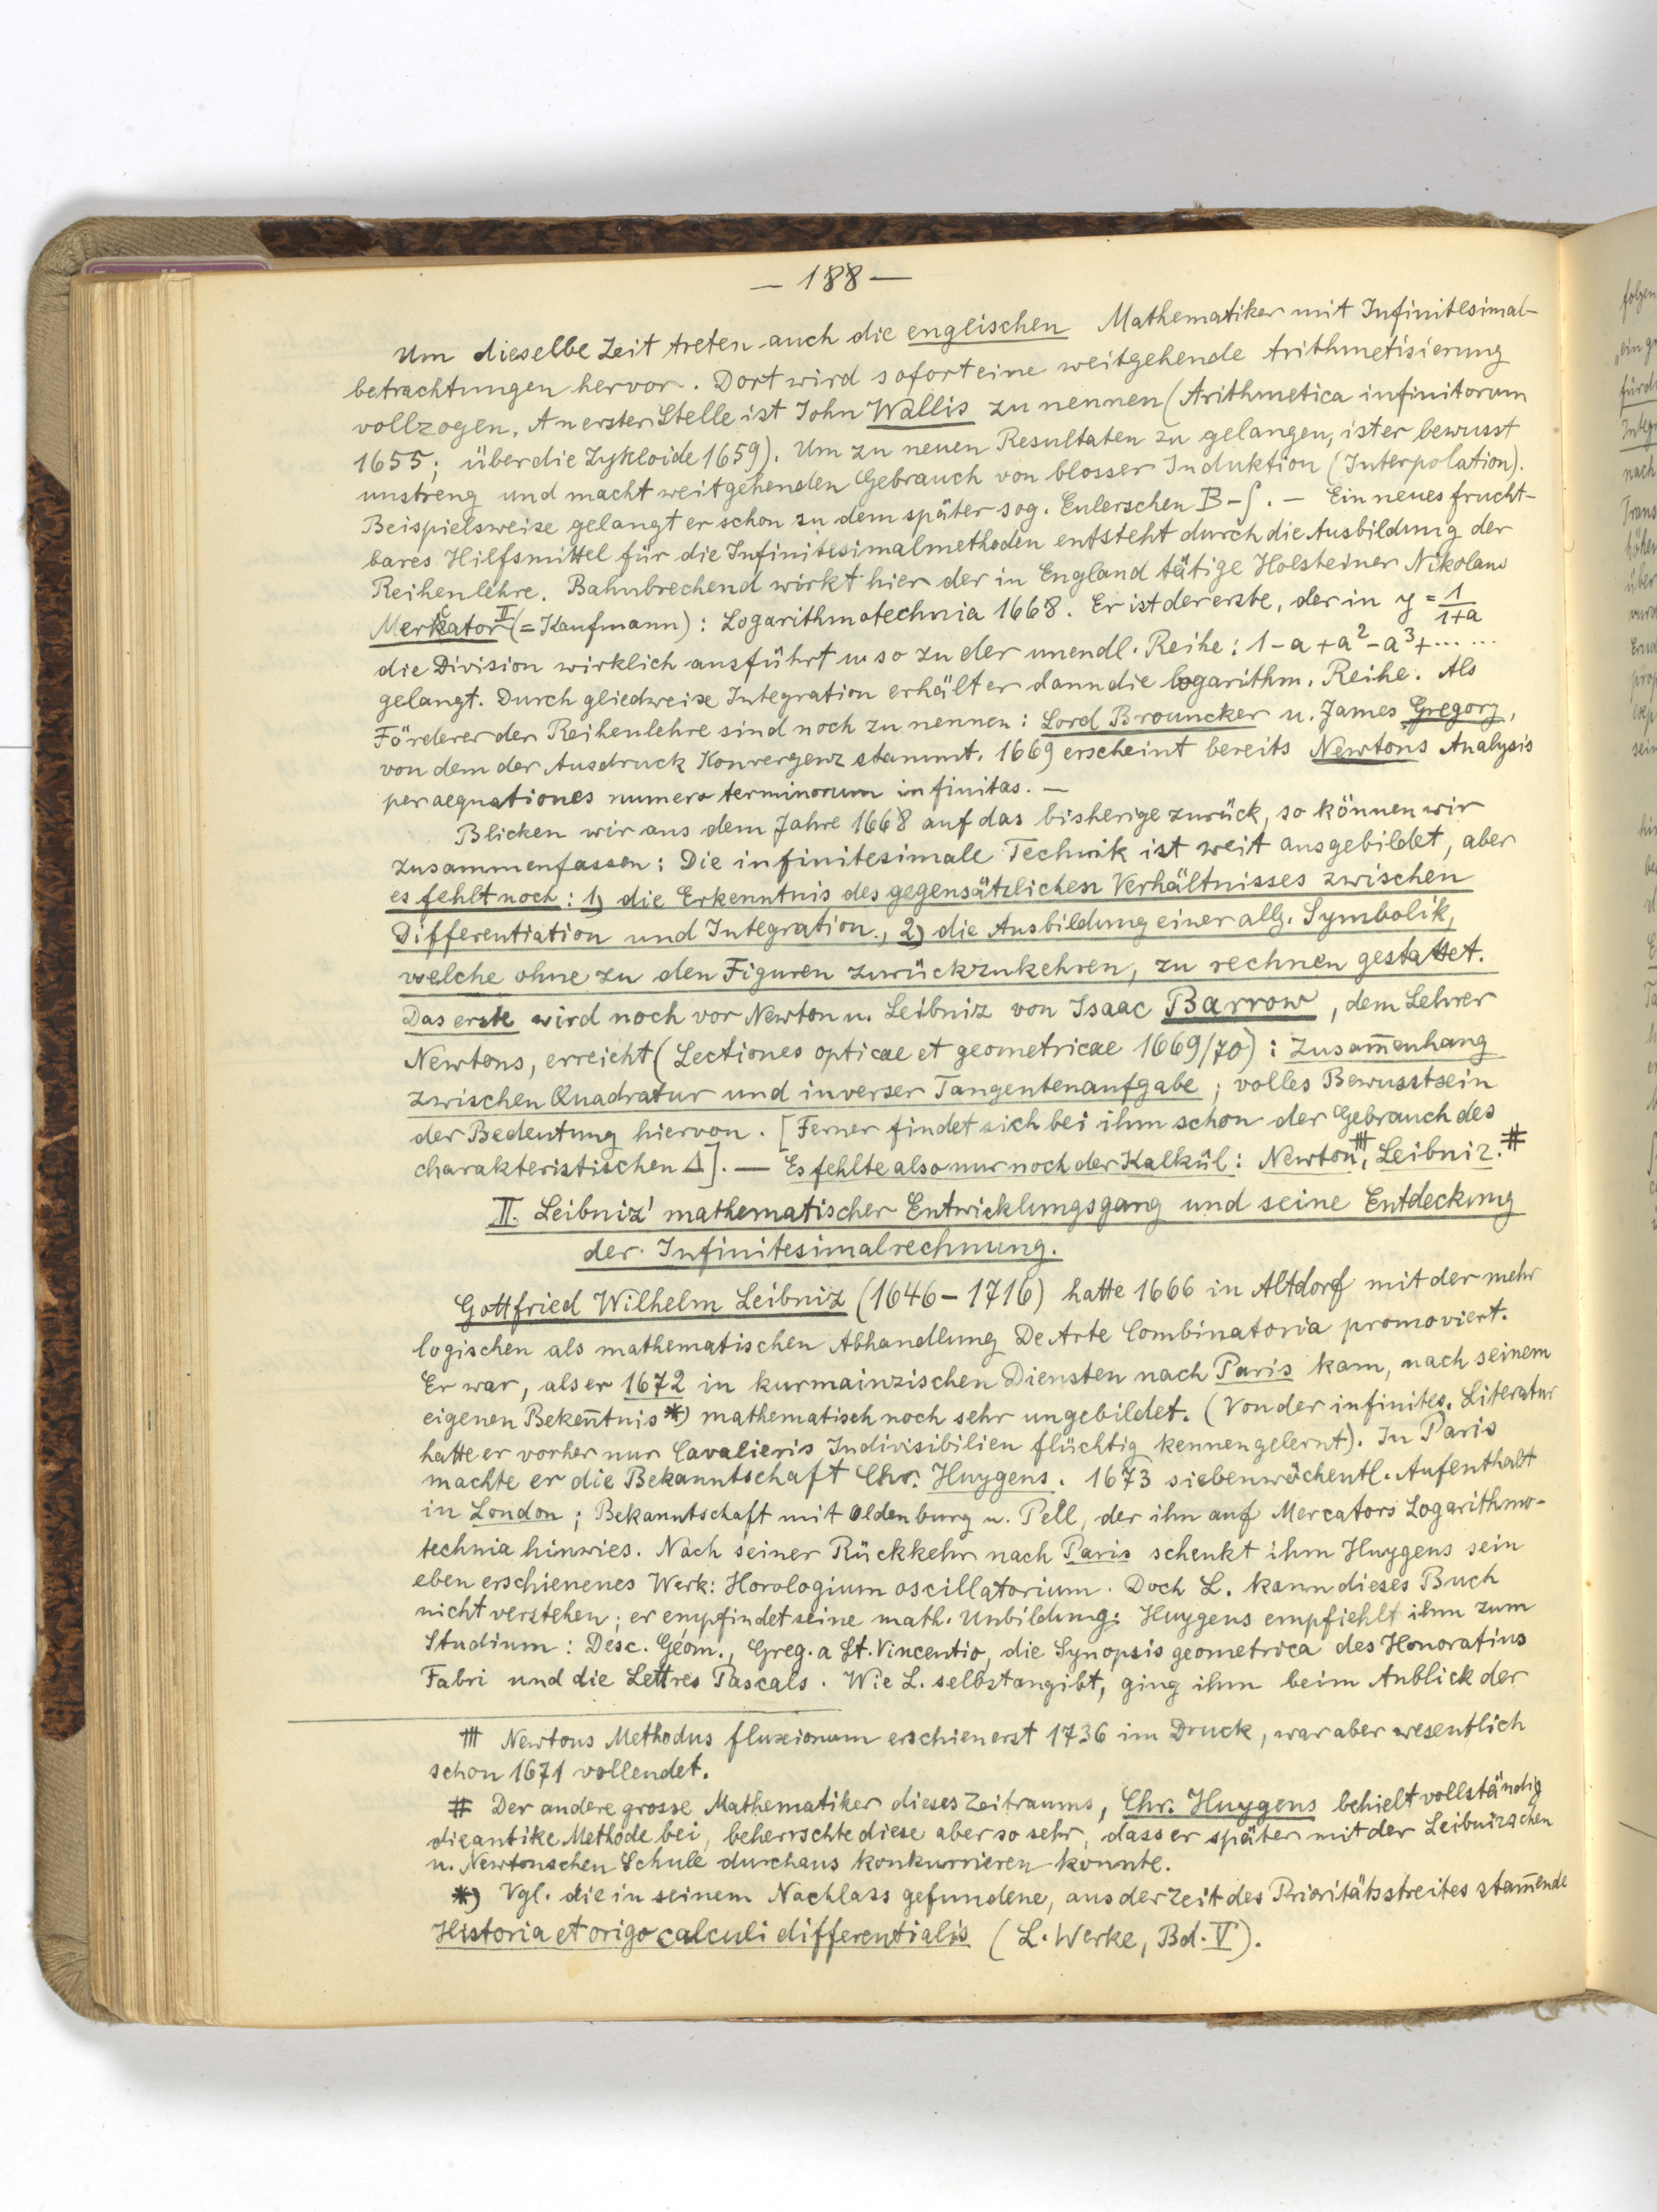 — 188 —
Um dieselbe Zeit treten auch die englischen Mathematiker mit Infinitesimal-
betrachtungen hervor. Dort wird sofort eine weitgehende Arithmetisierung
vollzogen. An erster Stelle ist John Wallis zu nennen (Arithmetica infinitorum
1655; über die Zykloide 1659). Um zu neuen Resultaten zu gelangen, ist er bewusst
unstreng und macht weitgehenden Gebrauch von blosser Induktion (Interpolation).
Beispielsweise gelangt er schon zu dem später sog. Eulerschen B-∫. — Ein neues frucht-
bares Hilfsmittel für die Infinitesimalmethoden entsteht durch die Ausbildung der
Reihenlehre. Bahnbrechend wirkt hier der in England tätige Holsteiner Nikolaus
Merkator II (= Kaufmann): Logarithmotechnia 1668. Er ist der erste, der in y = 1/(1+a)
die Division wirklich ausführt u. so zu der unendl. Reihe: 1 - a + a² - a³ + ... ...
gelangt. Durch gliedweise Integration erhält er dann die logarithm. Reihe. Als
Förderer der Reihenlehre sind noch zu nennen: Lord Brouncker u. James Gregory,
von dem der Ausdruck Konvergenz stammt. 1669 erscheint bereits Newtons Analysis
per aequationes numero terminorum infinitas. —
Blicken wir aus dem Jahre 1668 auf das bisherige zurück, so können wir
zusammenfassen: Die infinitesimale Technik ist weit ausgebildet, aber
es fehlt noch: 1) die Erkenntnis des gegensätzlichen Verhältnisses zwischen
Differentiation und Integration, 2) die Ausbildung einer allg. Symbolik,
welche ohne zu den Figuren zurückzukehren, zu rechnen gestattet.
Das erste wird noch vor Newton u. Leibniz von Isaac Barrow, dem Lehrer
Newtons, erreicht (Lectiones opticae et geometricae 1669/70): Zusam̄enhang
zwischen Quadratur und inverser Tangentenaufgabe; volles Bewusstsein
der Bedeutung hiervon. [Ferner findet sich bei ihm schon der Gebrauch des
charakteristischen Δ]. — Es fehlte also nur noch der Kalkül: Newton⧻, Leibniz.#
II. Leibniz' mathematischer Entwicklungsgang und seine Entdeckung
der Infinitesimalrechnung.
Gottfried Wilhelm Leibniz (1646-1716) hatte 1666 in Altdorf mit der mehr
logischen als mathematischen Abhandlung De Arte Combinatoria promoviert.
Er war, als er 1672 in kurmainzischen Diensten nach Paris kam, nach seinem
eigenen Beken̄tnis *) mathematisch noch sehr ungebildet. (Von der infinites. Literatur
hatte er vorher nur Cavalieris Indivisibilien flüchtig kennengelernt). In Paris
machte er die Bekanntschaft Chr. Huygens. 1673 siebenwöchentl. Aufenthalt
in London; Bekanntschaft mit Oldenburg u. Pell, der ihn auf Mercators Logarithmo-
technia hinwies. Nach seiner Rückkehr nach Paris schenkt ihm Huygens sein
eben erschienenes Werk: Horologium oscillatorium. Doch L. kann dieses Buch
nicht verstehen; er empfindet seine math. Unbildung. Huygens empfiehlt ihm zum
Studium: Desc. Géom., Greg. a St. Vincentio, die Synopsis geometrica des Honoratius
Fabri und die Lettres Pascals. Wie L. selbst angibt, ging ihm beim Anblick der
⧻ Newtons Methodus fluxionum erschien erst 1736 im Druck, war aber wesentlich
schon 1671 vollendet.
# Der andere grosse Mathematiker dieses Zeitraums, Chr. Huygens behielt vollständig
die antike Methode bei, beherrschte diese aber so sehr, dass er später mit der Leibnizschen
u. Newtonschen Schule durchaus konkurrieren konnte.
*) Vgl. die in seinem Nachlass gefundene, aus der Zeit des Prioritätsstreites stam̄ende
Historia et origo calculi differentialis (L. Werke, Bd. V).